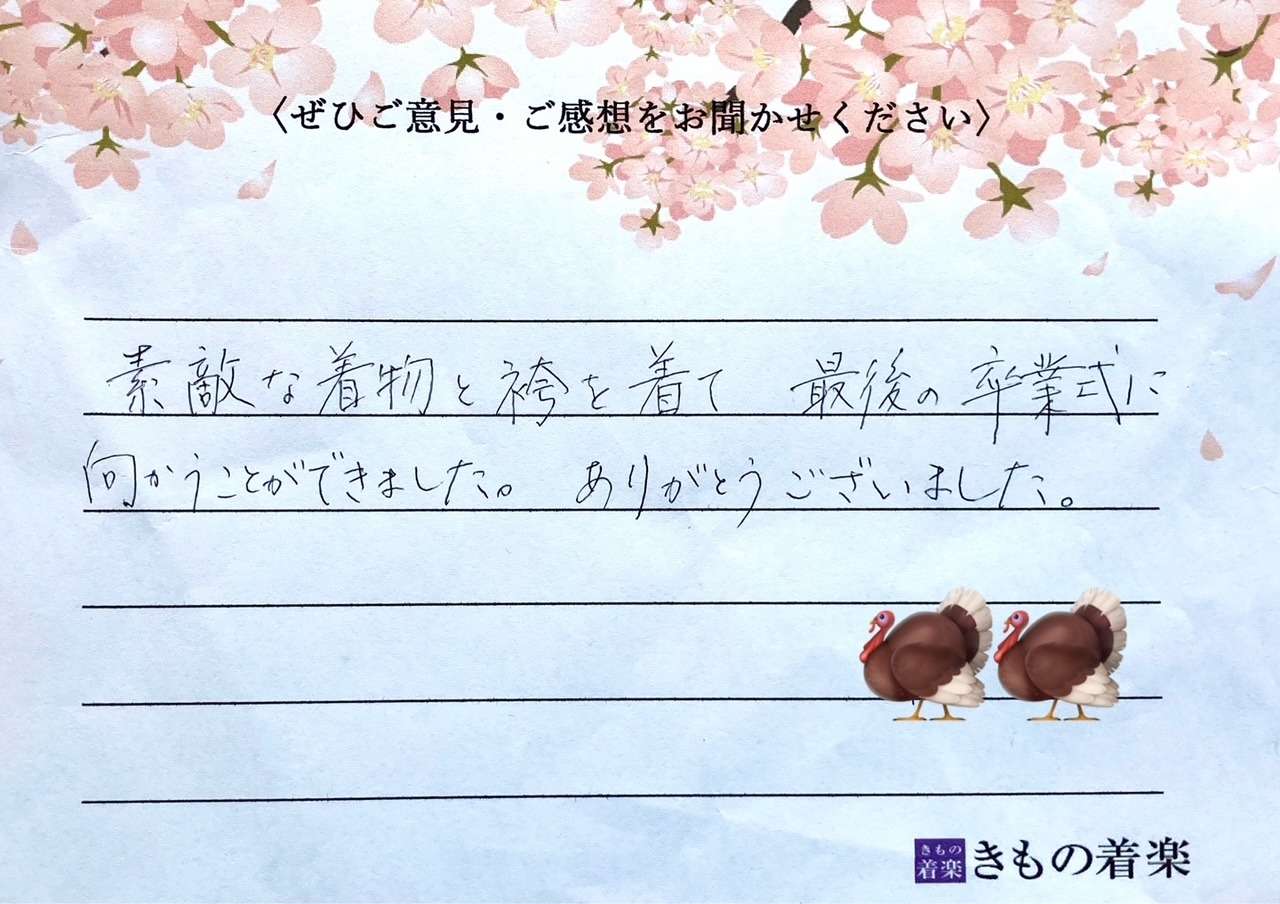 〈ぜひご意見・ご感想をお聞かせください〉
素敵な着物と袴を着て 最後の卒業式に
向かうことができました。 ありがとうございました。
きもの
着楽
きもの着楽